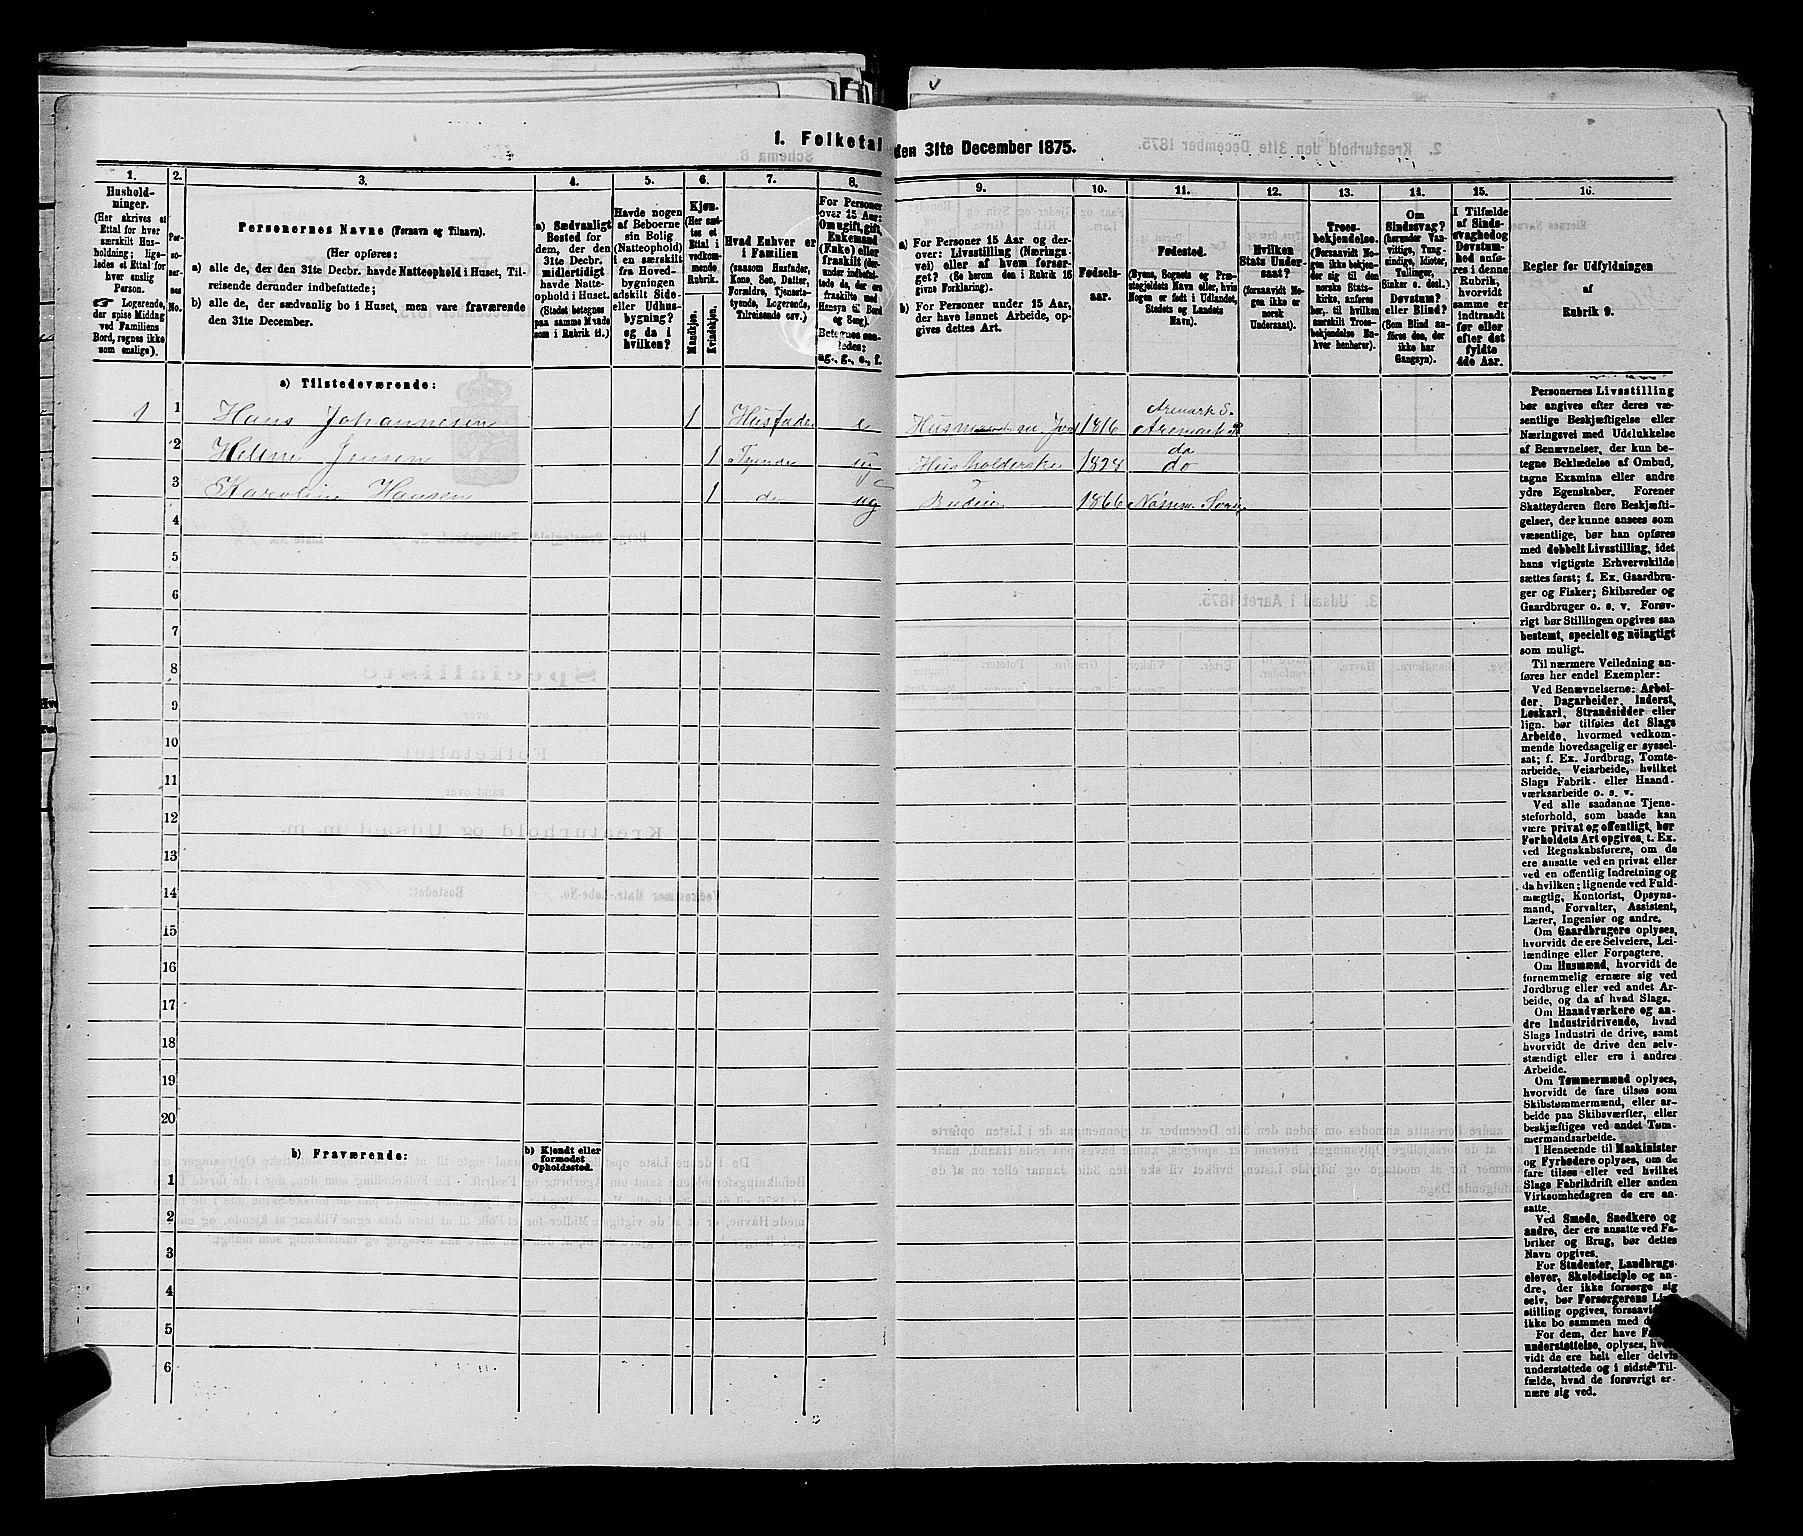 1. Folketal
den 31te December 1875.
1.
2.
3.
4.
5.
6.
7.
8.
9.
10.
11.
12.
13.
14.
15.
16.
Hushold-
ninger.
(Her skrives et
Ettal for hver
særskilt Hus-
holdning; lige-
ledes et Ettal for
hver enslig
Person.
☛ Logerende,
der spise Middag
ved Familiens
Bord, regnes ikke
som enslige).
Per-
so-
ner-
nes
No.
Personernes Navne (Fornavn og Tilnavn).
(Her opføres:
a) alle de, der den 31te Decbr. havde Natteophold i Huset, Til-
reisende derunder indbefattede;
b) alle de, der sædvanlig bo i Huset, men vare fraværende
den 31te December.
a) Sædvanligt
Bosted for
dem, der den
31te Decbr.
midlertidigt
havde Natte-
ophold i Huset.
(Stedet betegnes
paa samme Maade
som i Rubrik 11.)
Havde nogen
af Beboerne
sin Bolig
(Natteophold)
i en særskilt
fra Hoved-
bygningen
adskilt Side-
eller Udhus-
bygning?
og da i
hvilken?
Kjøn.
(Her sæt-
tes et
Ettal i
vedkom-
mende
Rubrik.
Mandkjøn.
Kvindekjøn.
Hvad Enhver er
i Familien
(saasom Husfader,
Kone, Søn, Datter,
Forældre, Tjenerets-
tyende, Logerende,
Tilreisende osv.)
For Personer
over 15 Aar:
Om ugift, gift,
Enkemand
(Enke) eller
fraskilt (her-
under indbefat-
tede de, der ere
fraskilte med
Hensyn til Bord
og Seng).
Betegnes saa-
ledes:
ug., g., e., f.
a) For Personer 15 Aar og der-
over: Livsstilling (Nærings-
vei) eller af hvem forsør-
get? (Se herom den i Rubrik 16
givne Forklaring).
b) For Personer under 15 Aar,
der have lønnet Arbeide, op-
gives dettes Art.
Fødsels-
aar.
Fødested.
(Byens, Sognets og Præ-
stegjeldets Navn, eller, hvis
Nogen er født i Udlandet,
Stedets og Landets
Navn).
Hvilken
Stats Under-
saat?
(forsaavidt No-
gen ikke er
norsk
Undersaat).
Troes-
bekjendelse.
(Forsaavidt No-
gen ikke bekjen-
der sig til den
norske Stats-
kirke, anføres
her, til hvilken
særskilt Troes-
bekjendelse En-
hver henhører).
Om
Sindssvag?
(herunder Van-
vittige, Tung-
sindige, Idioter,
Tullinger,
Sinker o. desl.)
Døvstum?
eller Blind?
(Som Blind an-
føres den, der
ikke har
Gangsyn).
I Tilfælde
af Sinds-
svaghed og
Døvstum-
hed anfø-
res i denne
Rubrik,
hvorvidt
samme er
indtraadt
før eller
efter det
fyldte
4de Aar.
Regler for Udfyldningen
af
Rubrik 9.
a) Tilstedeværende:
Aremark S.
1 1 Hans Johannesen 1 Husfader e 1816 Aremark P
do
2 Helene Jensen 1 Husholderske 1828 do
3 Karoline Hansen 1 do ug 1866
4
5
6
7
8
9
10
11
12
13
14
15
16
17
18
19
20
b) Fraværende:
b) Kjendt eller
formodet
Opholdssted.
1
2
3
4
5
6
Personernes Livsstilling
bør angives efter deres væ-
sentlige Beskjæftigelse eller
Næringsvei med Udelukkelse
af Benævnelser, der kun be-
tegne Beklædelse af Ombud,
tagne Examina eller andre
ydre Egenskaber. Forener
Skatteyderen flere Beskjæfti-
gelser, der kunne ansees som
væsentlige, bør han opføres
med dobbelt Livsstilling, idet
hans vigtigste Erhvervskilde
sættes først; f. Ex. Gaardbru-
ger og Fisker; Skibsreder og
Gaardbruger o. s. v. Forøv-
rigt bør Stillingen opgives saa
bestemt, specielt og nöiagtigt
som muligt.
Til nærmere Veiledning an-
føres her endel Exempler:
Ved Benævnelserne: Arbei-
der, Dagarbeider, Inderst,
Løskarl, Strandsidder eller
lign. bør tilføies det Slags
Arbeide, hvormed vedkom-
mende hovedsagelig er syssel-
sat; f. Ex. Jordbrug, Tomte-
arbeide, Veiarbeide, hvilket
Slags Fabrik- eller Haand-
værksarbeide o. s. v.
Ved alle saadanne Tjene-
steforhold, som baade kan
være privat og offentligt, bør
Forholdets Art opgives, t. Ex.
ved Regnskabsførere, om de
ere ansatte ved en privat eller
ved en offentlig Indretning og
da hvilken; lignende ved Fuld-
mægtig, Kontorist, Opsyns-
mand, Forvalter, Assistent,
Lærer, Ingeniør og andre.
Om Gaardbrugere oplyses,
hvorvidt de ere Selveiere, Lei-
lændinge eller Forpagtere.
Om Husmænd, hvorvidt de
fornemmelig ernære sig ved
Jordbrug eller ved andet Ar-
beide, og da af hvad Slags.
Om Haandværkere og an-
dre Industridrivende, hvad
Slags Industri de drive, samt
hvorvidt de drive den selv-
stændigt eller ere i andres
Arbeide.
Om Tømmermænd oplyses,
hvorvidt de fare tilsøs som
Skibstømmermænd, eller ar-
beide paa Skibsværfter, eller
beskjæftiges ved andet Tøm-
mermandsarbeide.
I Henseende til Maskinister
og Fyrbødere oplyses, om de
fare tilsøs eller ved hvilket
Slags Fabrikdrift eller anden
Virksomhedsgren de ere an-
satte.
Ved Smede, Snedkere og
andre, der ere ansatte ved Fa-
briker og Brug, bør dettes
Navn opgives.
For Studenter, Landbrugs-
elever, Skoledisciple og an-
dre, der ikke forsørge sig
selv, bør Forsørgerens
stilling opgives,
ikke bo sammen med
For dem, der have
understøttelse, oplyses,
vidt de ere helt eller delvis
understøttede og i sidste Til-
fælde, hvad de forøvrigt er-
nære sig ved.